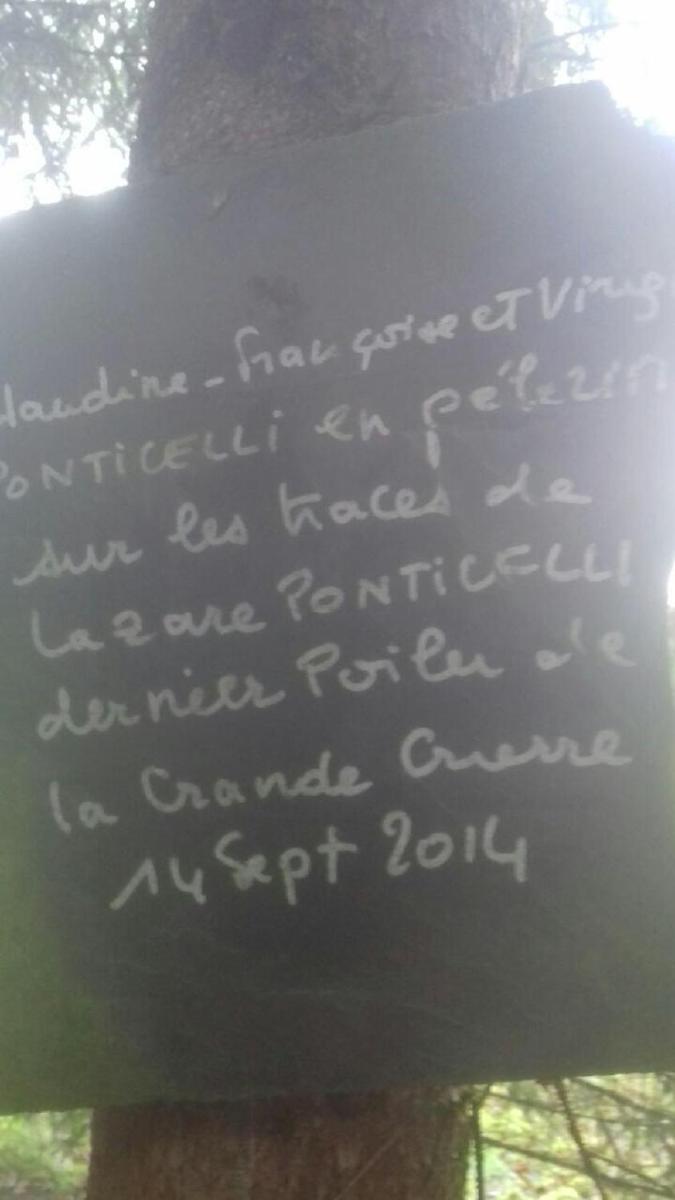 Claudine - Françoise et Virug
PONTICELLI en pélerin
sur les traces de
Lazare PONTICELLI
dernier Poilu de
la Grande Guerre
14 Sept 2014